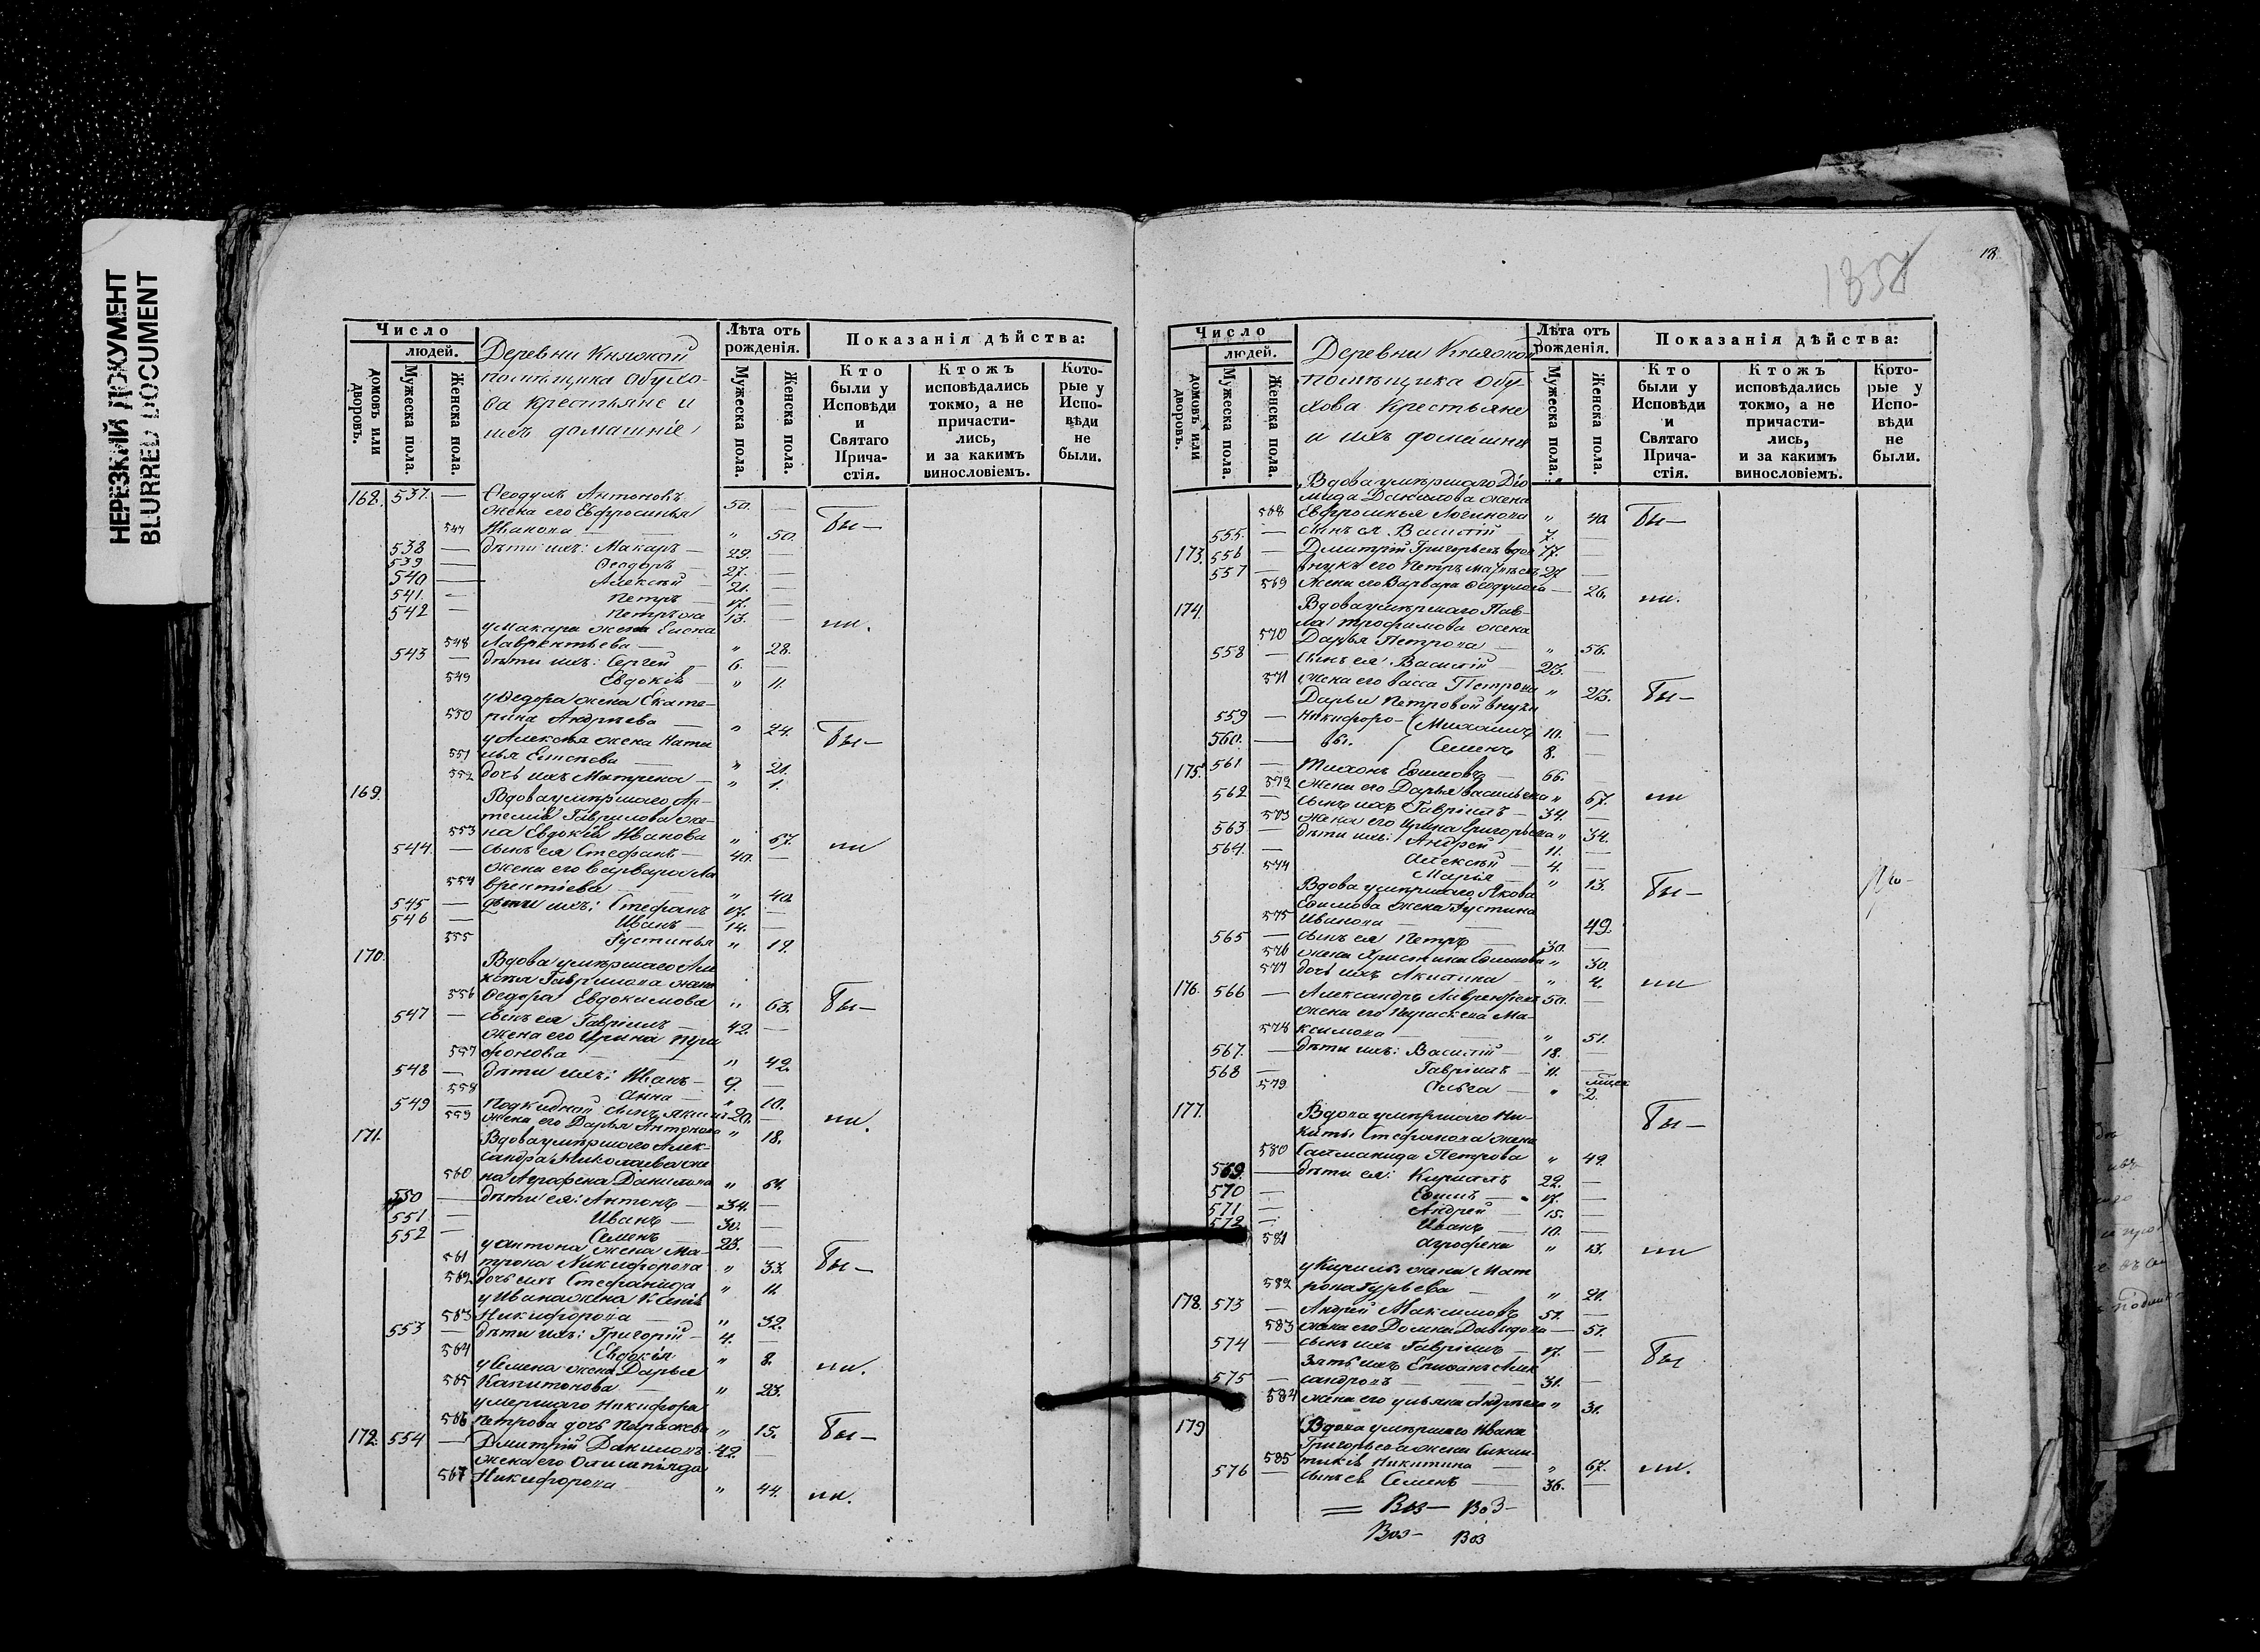 НЕРЕЗКИЙ ДОКУМЕНТ
BLURRED DOCUMENT
Число
людей.
домовъ или дворовъ.
Мужеска пола.
Женска пола.
Деревни Княжой
помѣщика Обухо-
ва крестьяне и
ихъ домашніе
Лѣта отъ рожденія.
Мужеска пола.
Женска пола.
Показанія дѣйства:
Кто были у Исповѣди и Святаго Прича-стія.
Ктожъ исповѣдались токмо, а не причасти-лись, и за какимъ винословіемъ.
Кото-рые у Испо-вѣди не были.
168. 537. — Ѳеодулъ Антоновъ 50. —
жена его Евфросинья
547 Иванова — " 50. Бы—
538 — дѣти ихъ: Макаръ — 29. —
539 — Ѳеодоръ — 27. —
540 — Алексѣй — 21. —
541. — Петръ — 17. —
542 — Петръ же 13. — ли.
у Макара жена Елена
548 Лаврентьева — " 28.
543 — дѣти ихъ: Сергей — 6. —
549 Евдокія — " 11.
у Ѳедора жена Екате-
550 рина Андреева — " 24. Бы—
у Алексѣя жена Ната
551 лья Елисѣева — " 21.
552 дочь ихъ Матрена — " 1.
169. Вдова умершаго Ар-
темія Гаврилова же-
553 на Евдокія Иванова " 67. ли
544. — сынъ ея Стефанъ — 40. —
жена его Варвара Ла
554 врентіева — " 40.
545 — дѣти ихъ: Стефанъ 17. —
546 — Иванъ — 14. —
555 Густинья " 19.
170. Вдова умершаго Але
ксѣя Гаврилова жена
556 Ѳедора Евдокимова " 63. Бы—
547 — сынъ ея Гавріилъ — 42. —
жена его Ирина
557 " 42.
548 — дѣти ихъ: Иванъ — 9. —
558 Анна — " 10.
549 — Подкидной сынъ 20. — ли.
559 жена его Дарья Антонова " 18.
171. Вдова умершаго Алек-
сандра Николаева же
560 на Агрофена Данилова " 61.
550 — дѣти ея: Антонъ — 34. —
551 — Иванъ — 30. —
552 — Семенъ — 23. —
у Антона жена Ма-
561 трона Никифорова " 33. Бы—
562 дочь ихъ Стефанида " 11.
у Ивана жена
563 Никифорова — " 32.
553 — дѣти ихъ: Григорій — 4. —
564 Евдокія " 8. ли.
у Семена жена Дарья
565 Капитонова — " 23.
умершаго Никифора
566 Петрова дочь Парасковья " 15. Бы—
172. 554 — Дмитрій Даниловъ 42. —
жена его Олимпіяда
567 Никифорова — " 44. ли.
18
1837
Число
людей.
домовъ или дворовъ.
Мужеска пола.
Женска пола.
Деревни Княжой
помѣщика Обу-
хова Крестьяне
и ихъ домашнія
Лѣта отъ рожденія.
Мужеска пола.
Женска пола.
Показанія дѣйства:
Кто были у Исповѣди и Святаго Прича-стія.
Ктожъ исповѣдались токмо, а не причасти-лись, и за какимъ винословіемъ.
Кото-рые у Испо-вѣди не были.
Вдова умершаго Діо
мида Данилова жена
568 Евфросинья Логинова " 40. Бы—
555. — сынъ ея Василій 7. —
173. 556 — Дмитрій Григорьевъ вдов 77. —
557 — внукъ его Петръ 27 —
569 жена его Варвара Ѳеодулова — 26. ли.
174. Вдова умершаго Пав-
ла Трофимова жена
570 Дарья Петрова — " 56.
558 — сынъ ея Василій — 23. —
571 жена его Васса Петрова " 23. Бы—
Дарьи Петровой внуки
559 — Никифоро- Михаилъ 10. —
560. — вы. Семенъ 8. —
175. 561 — Тихонъ Ефимовъ — 66. —
572 жена его Дарья Васильева " 67. ли
562 — сынъ ихъ Гавріилъ — 34. —
573 жена его Ирина Григорьева " 34.
563 — дѣти ихъ: Андрей — 11. —
564. — Алексѣй — 4. —
574 Марія — " 13. Бы—
Вдова умершаго Якова
Ефимова жена Густина
575 Иванова — 49.
565 — сынъ ея Петръ — 30. —
576 жена Христина Ефимова " 30.
577 дочь ихъ Акилина — " 4. ли
176. 566 — Александръ Лаврентьевъ 50. —
жена его Параскева Ма-
578 ксимова — " 51.
567. — дѣти ихъ: Василій — 18. —
568 — Гавріилъ — 11. —
579 Ольга — " 2.
177. Вдова умершаго Ни-
киты Стефанова жена Бы—
580 Петрова " 49.
569. — дѣти ея: Кирилъ 22. —
570 — Ефимъ — 17. —
571 — Андрей — 15. —
572 — Иванъ — 10. —
581 Агрофена " 13. ли
у Кирилы жена Мат
582 рона Гурьева — " 21.
178. 573 — Андрей Максимовъ 51. —
583 жена его Домна Давидова — 51.
574 — сынъ ихъ Гавріилъ — 17. — Бы
зять ихъ Епифанъ Алек
575 — сандровъ — 31. —
584 жена его Ульяна Андреева " 31.
179 Вдова умершаго Ивана
Григорьева жена
585 Никитина — " 67. ли.
576 — сынъ ея Семенъ — 36. —
= Воз— Воз—
Воз— Воз